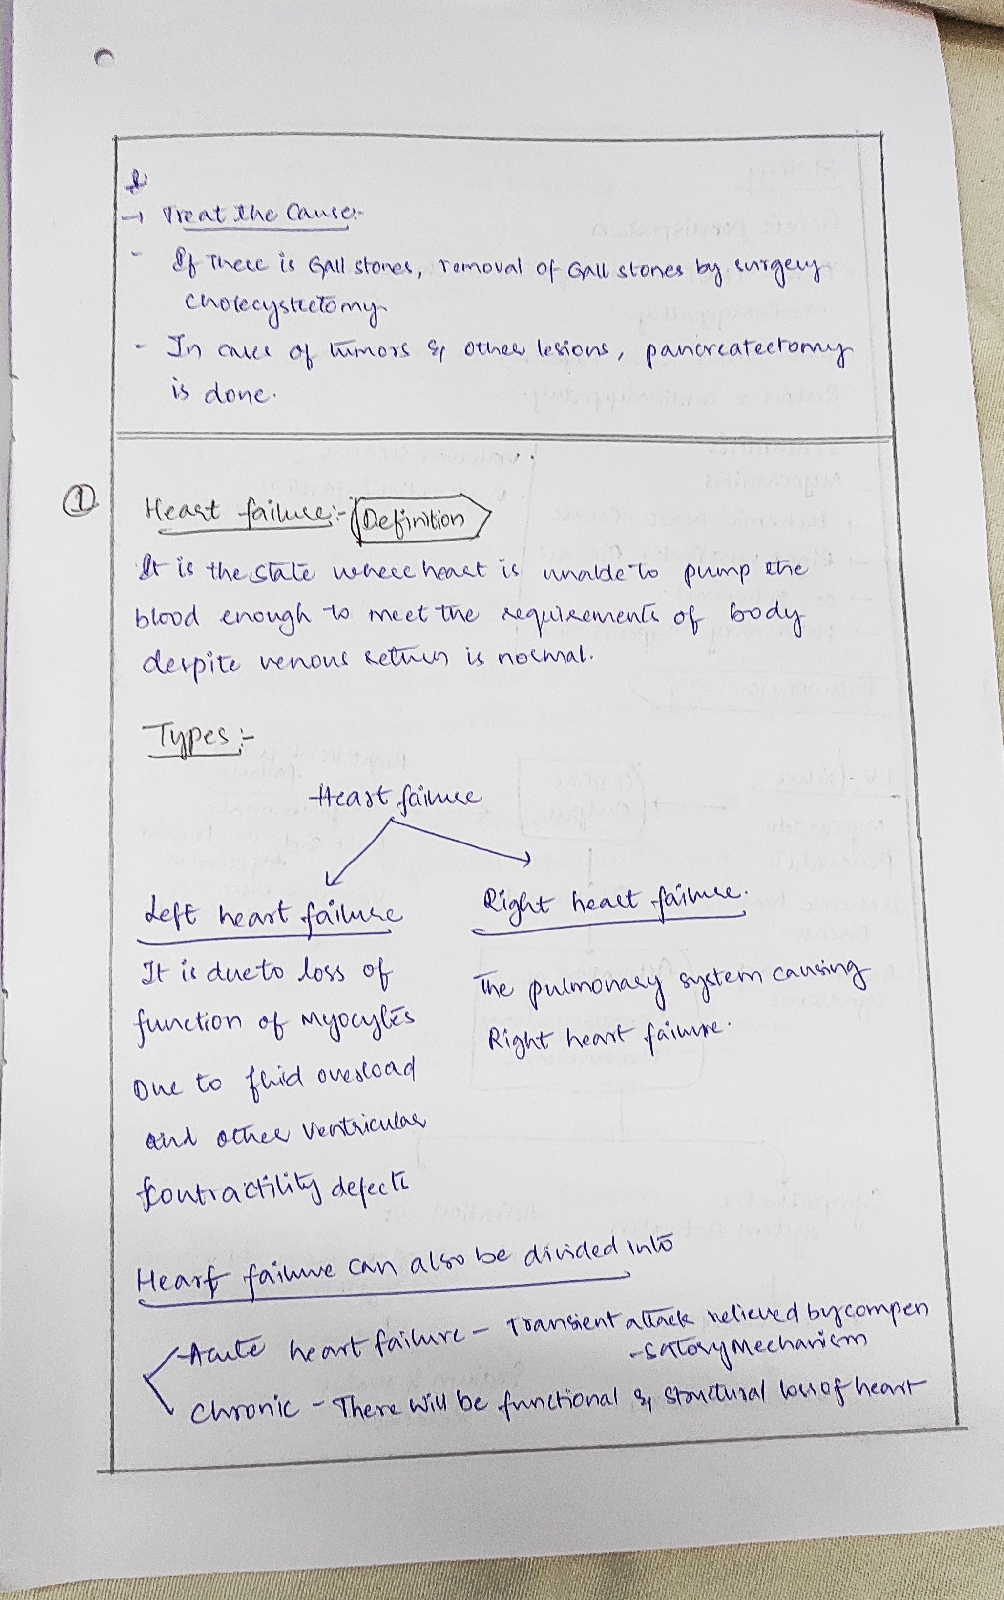 → Treat the Cause:-
- If There is Gall stones, removal of Gall stones by surgery
cholecystectomy
- In cases of tumors & other lesions, pancreatectomy
is done.
①
Heart failure:- Definition
It is the state where heart is unable to pump the
blood enough to meet the requirements of body
despite venous return is normal.
Types:-
Heart failure
Left heart failure
Right heart failure.
It is due to loss of
function of myocytes
Due to fluid overload
and other ventricular
contractility defects
The pulmonary system causing
Right heart failure.
Heart failure can also be divided into
Acute heart failure - Transient attack relieved by compen
-satory Mechanism
Chronic - There will be functional & structural loss of heart